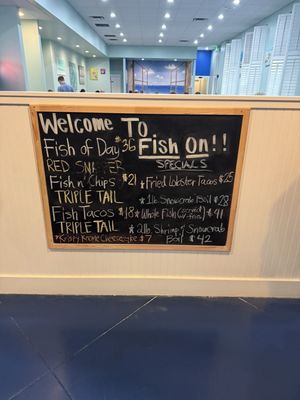 Welcome To
Fish On!!
Fish of Day $36
RED SNAPPER
Fish n' Chips $21
TRIPLE TAIL
Fish Tacos $18
TRIPLE TAIL
*Krispy Kreme Cheesecake $7
SPECIALS
*Fried Lobster Tacos $25
*1lb. Snowcrab Boil $28
*Whole Fish $41
*2lb. Shrimp & Snowcrab
Boil $42